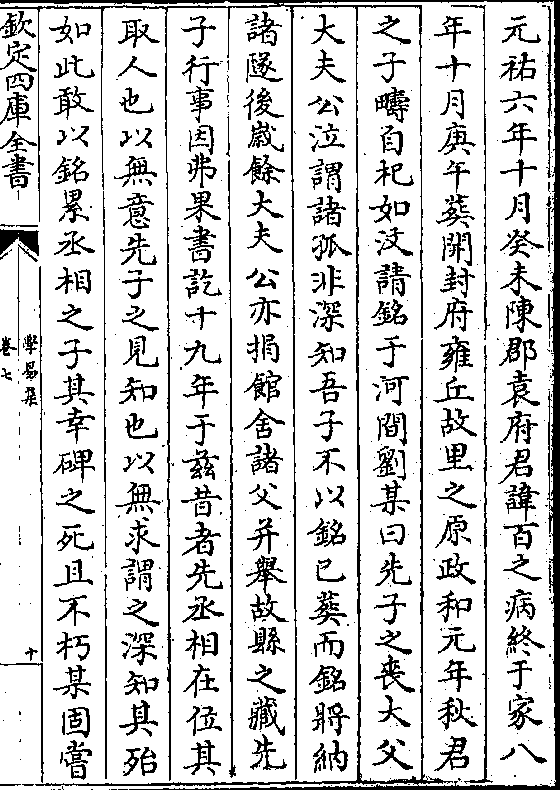 元祐六年十月癸未陳郡袁府君諱百之病終于家八
年十月庚午葬開封府雍丘故里之原政和元年秋君
之子疇自杞如汶請銘于河間劉某曰先子之喪大父
大夫公泣謂諸孤非深知吾子不以銘已葬而銘將納
諸隧後嵗餘大夫公亦捐館舍諸父并舉故縣之藏先
子行事因弗果書訖十九年于兹昔者先丞相在位其
取人也以無意先子之見知也以無求謂之深知其殆
如此敢以銘累丞相之子其幸碑之死且不朽某固嘗
欽定四庫全書
學易集
卷七
十